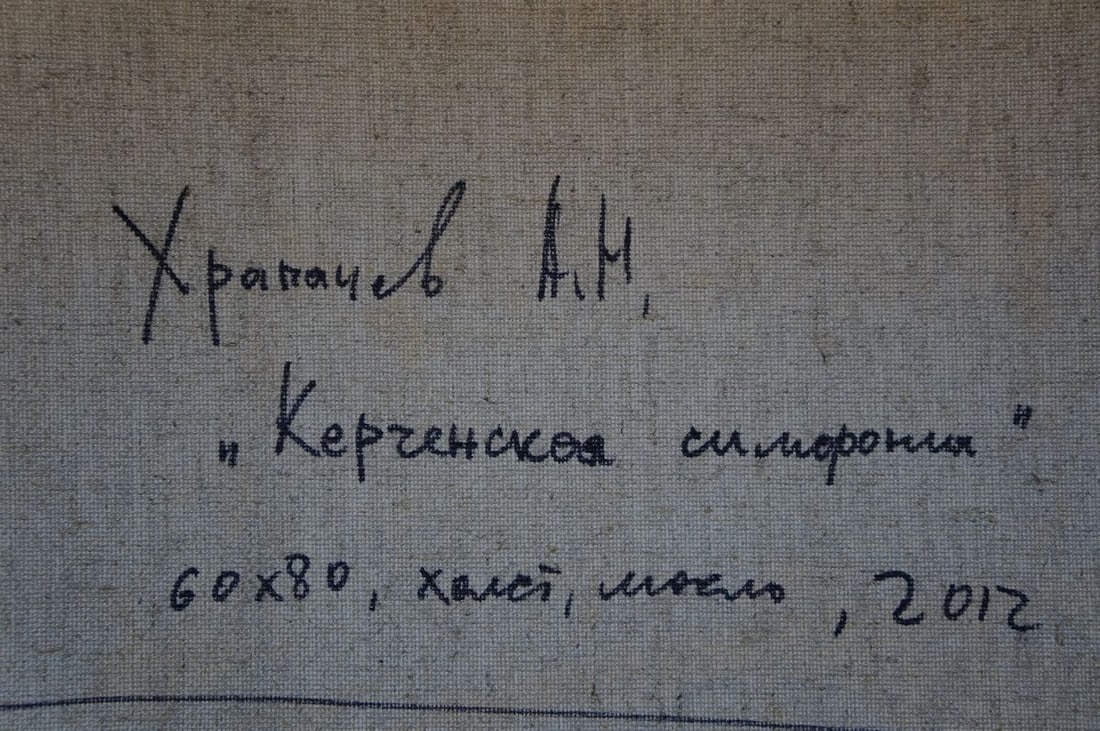 Храпачев А.Н,
„Керченская симфония"
60х80, холст, масло, 2012